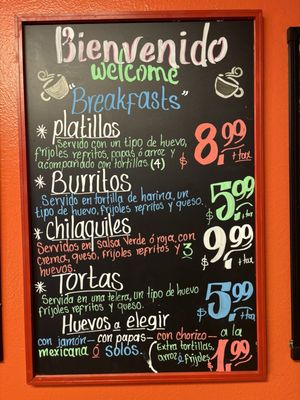 Bienvenido
welcome
"Breakfasts"
* Platillos
Servido con un tipo de huevo,
frijoles refritos, papas ó arroz y
acompañado con tortillas (4)
$ 8.99 + tax
* Burritos
Servido en tortilla de harina, un
tipo de huevo, frijoles refritos y queso.
$ 5.99 + tax
* Chilaquiles
Servidos en Salsa Verde ó roja, con
crema, queso, frijoles refritos y 3
huevos.
$ 9.99 + tax
* Tortas
Servida en una telera, un tipo de huevo
frijoles refritos y queso.
$ 5.99 + tax
Huevos a elegir
con jamón - con papas - con chorizo - a la
mexicana ó solos.
(Extra tortillas,
arroz ó frijoles
$ 1.99